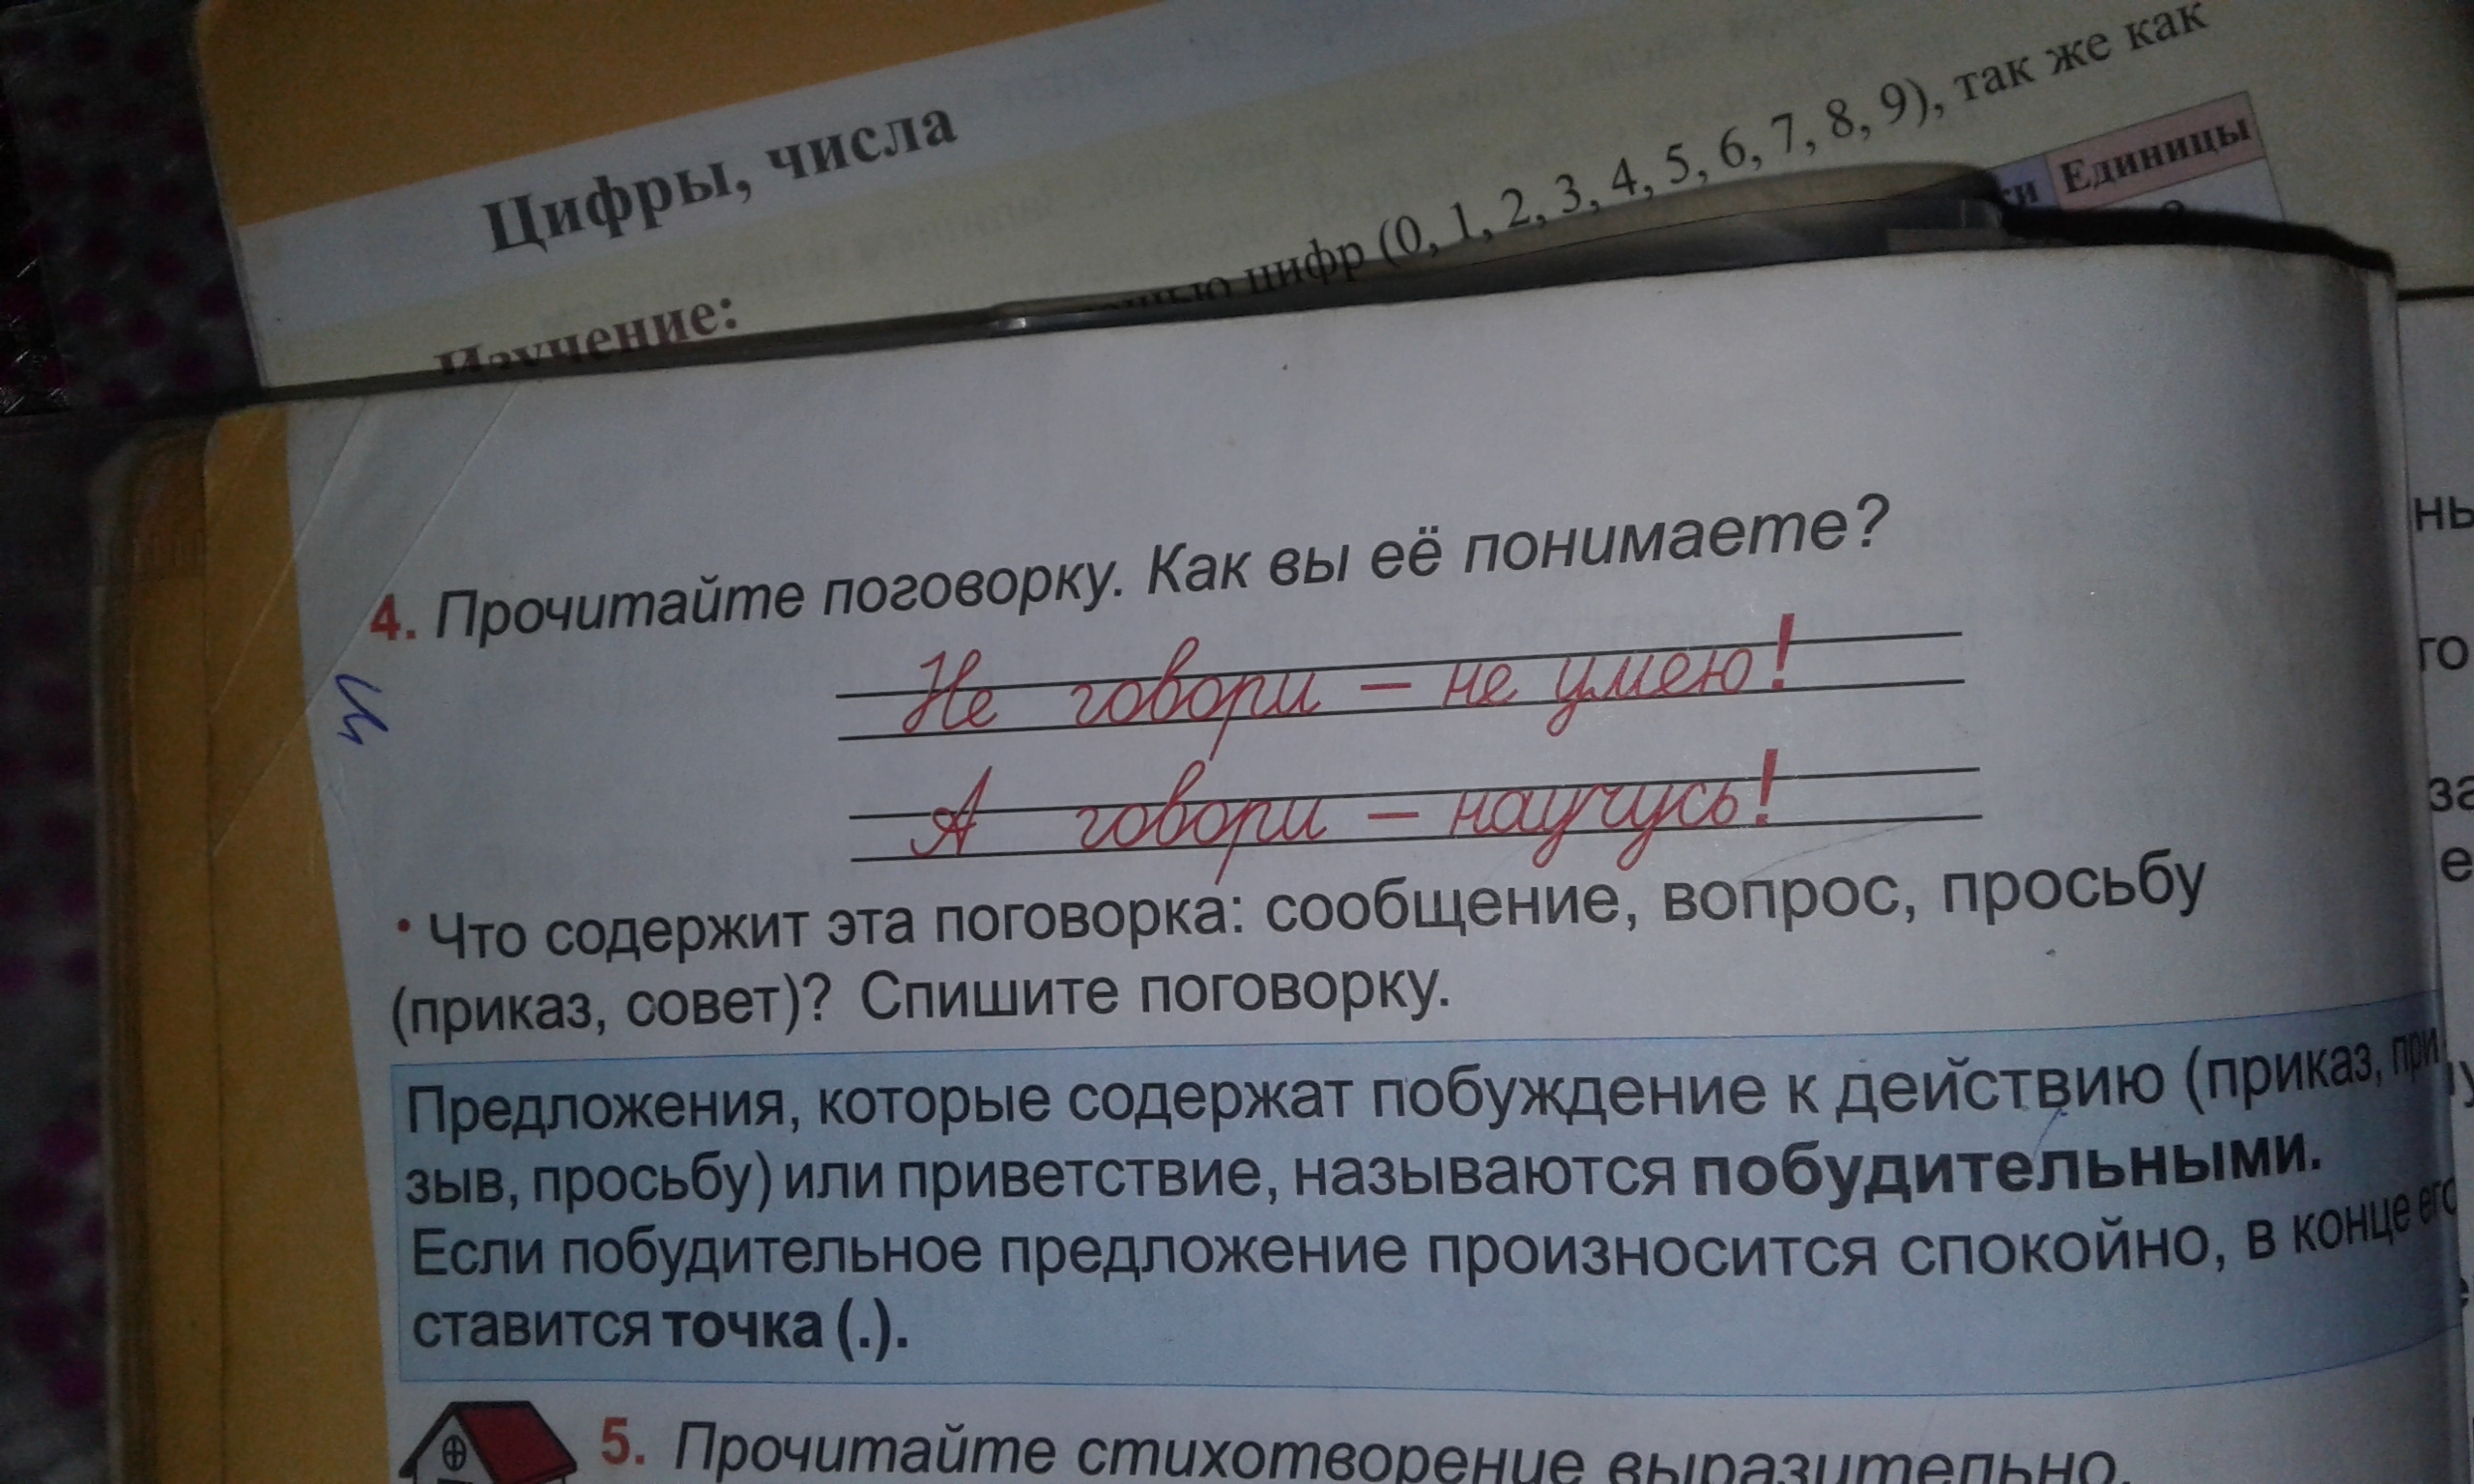 Цифры, числа
Изучение:
цифр (0, 1, 2, 3, 4, 5, 6, 7, 8, 9), так же как
Единицы
4. Прочитайте поговорку. Как вы её понимаете?
Не говори – не умею!
А говори – научусь!
• Что содержит эта поговорка: сообщение, вопрос, просьбу
(приказ, совет)? Спишите поговорку.
Предложения, которые содержат побуждение к действию (приказ, при
зыв, просьбу) или приветствие, называются побудительными.
Если побудительное предложение произносится спокойно, в конце его
ставится точка (.).
5. Прочитайте стихотворение выразительно.